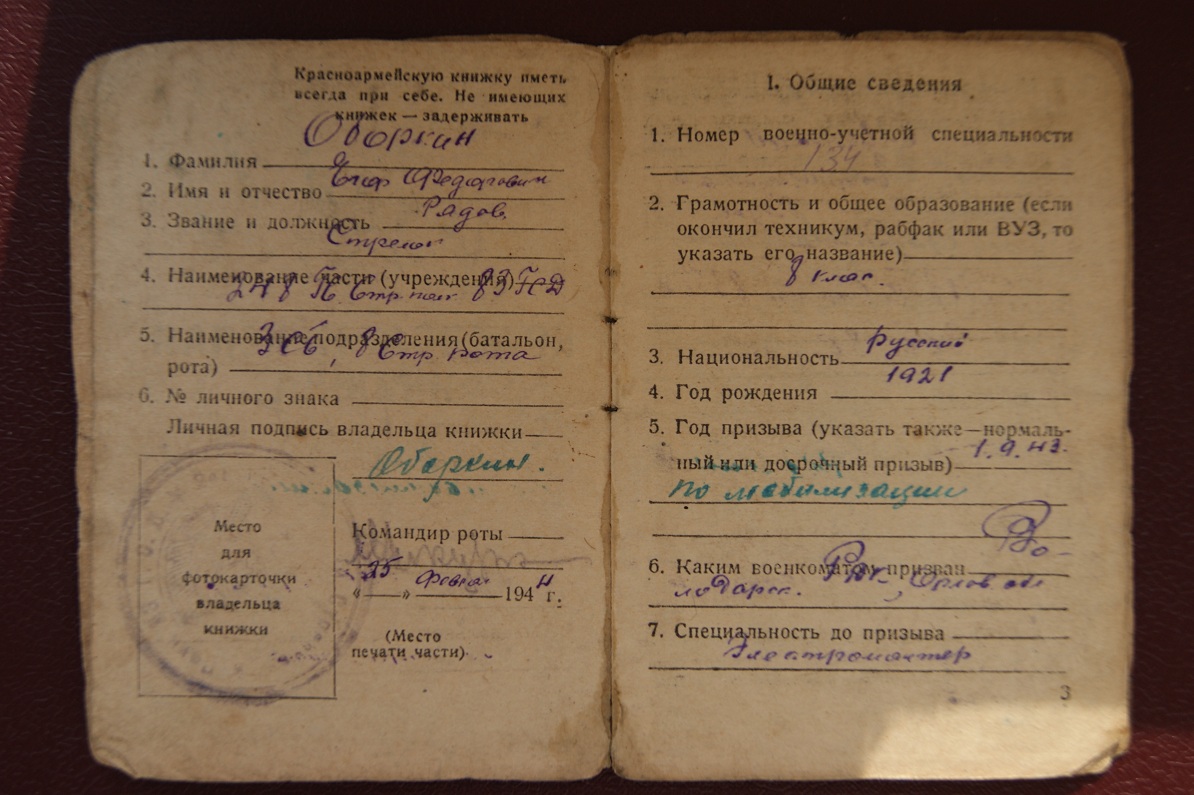 Красноармейскую книжку иметь
всегда при себе. Не имеющих
книжек — задерживать
Оборкин
1. Фамилия
Егор Федорович
2. Имя и отчество
Рядов.
3. Звание и должность
Стрелок
4. Наименование части (учреждения)
248 Гв. Стр. полк 83 ГСД
5. Наименование подразделения (батальон,
3 сб, 8 Стр рота
рота)
6. № личного знака
Личная подпись владельца книжки
Оборкин.
Место
для
фотокарточки
владельца
книжки
Командир роты
"25" Феврал 1944 г.
(Место
печати части)
I. Общие сведения
1. Номер военно-учетной специальности
134
2. Грамотность и общее образование (если
окончил техникум, рабфак или ВУЗ, то
указать его название)
8 клас.
Русский
3. Национальность
1921
4. Год рождения
5. Год призыва (указать также—нормаль-
1.9.43.
ный или досрочный призыв)
по мобилизации
Во-
6. Каким военкоматом призван
лодарск. РВК, Орлов обл
7. Специальность до призыва
Электромонтер
3